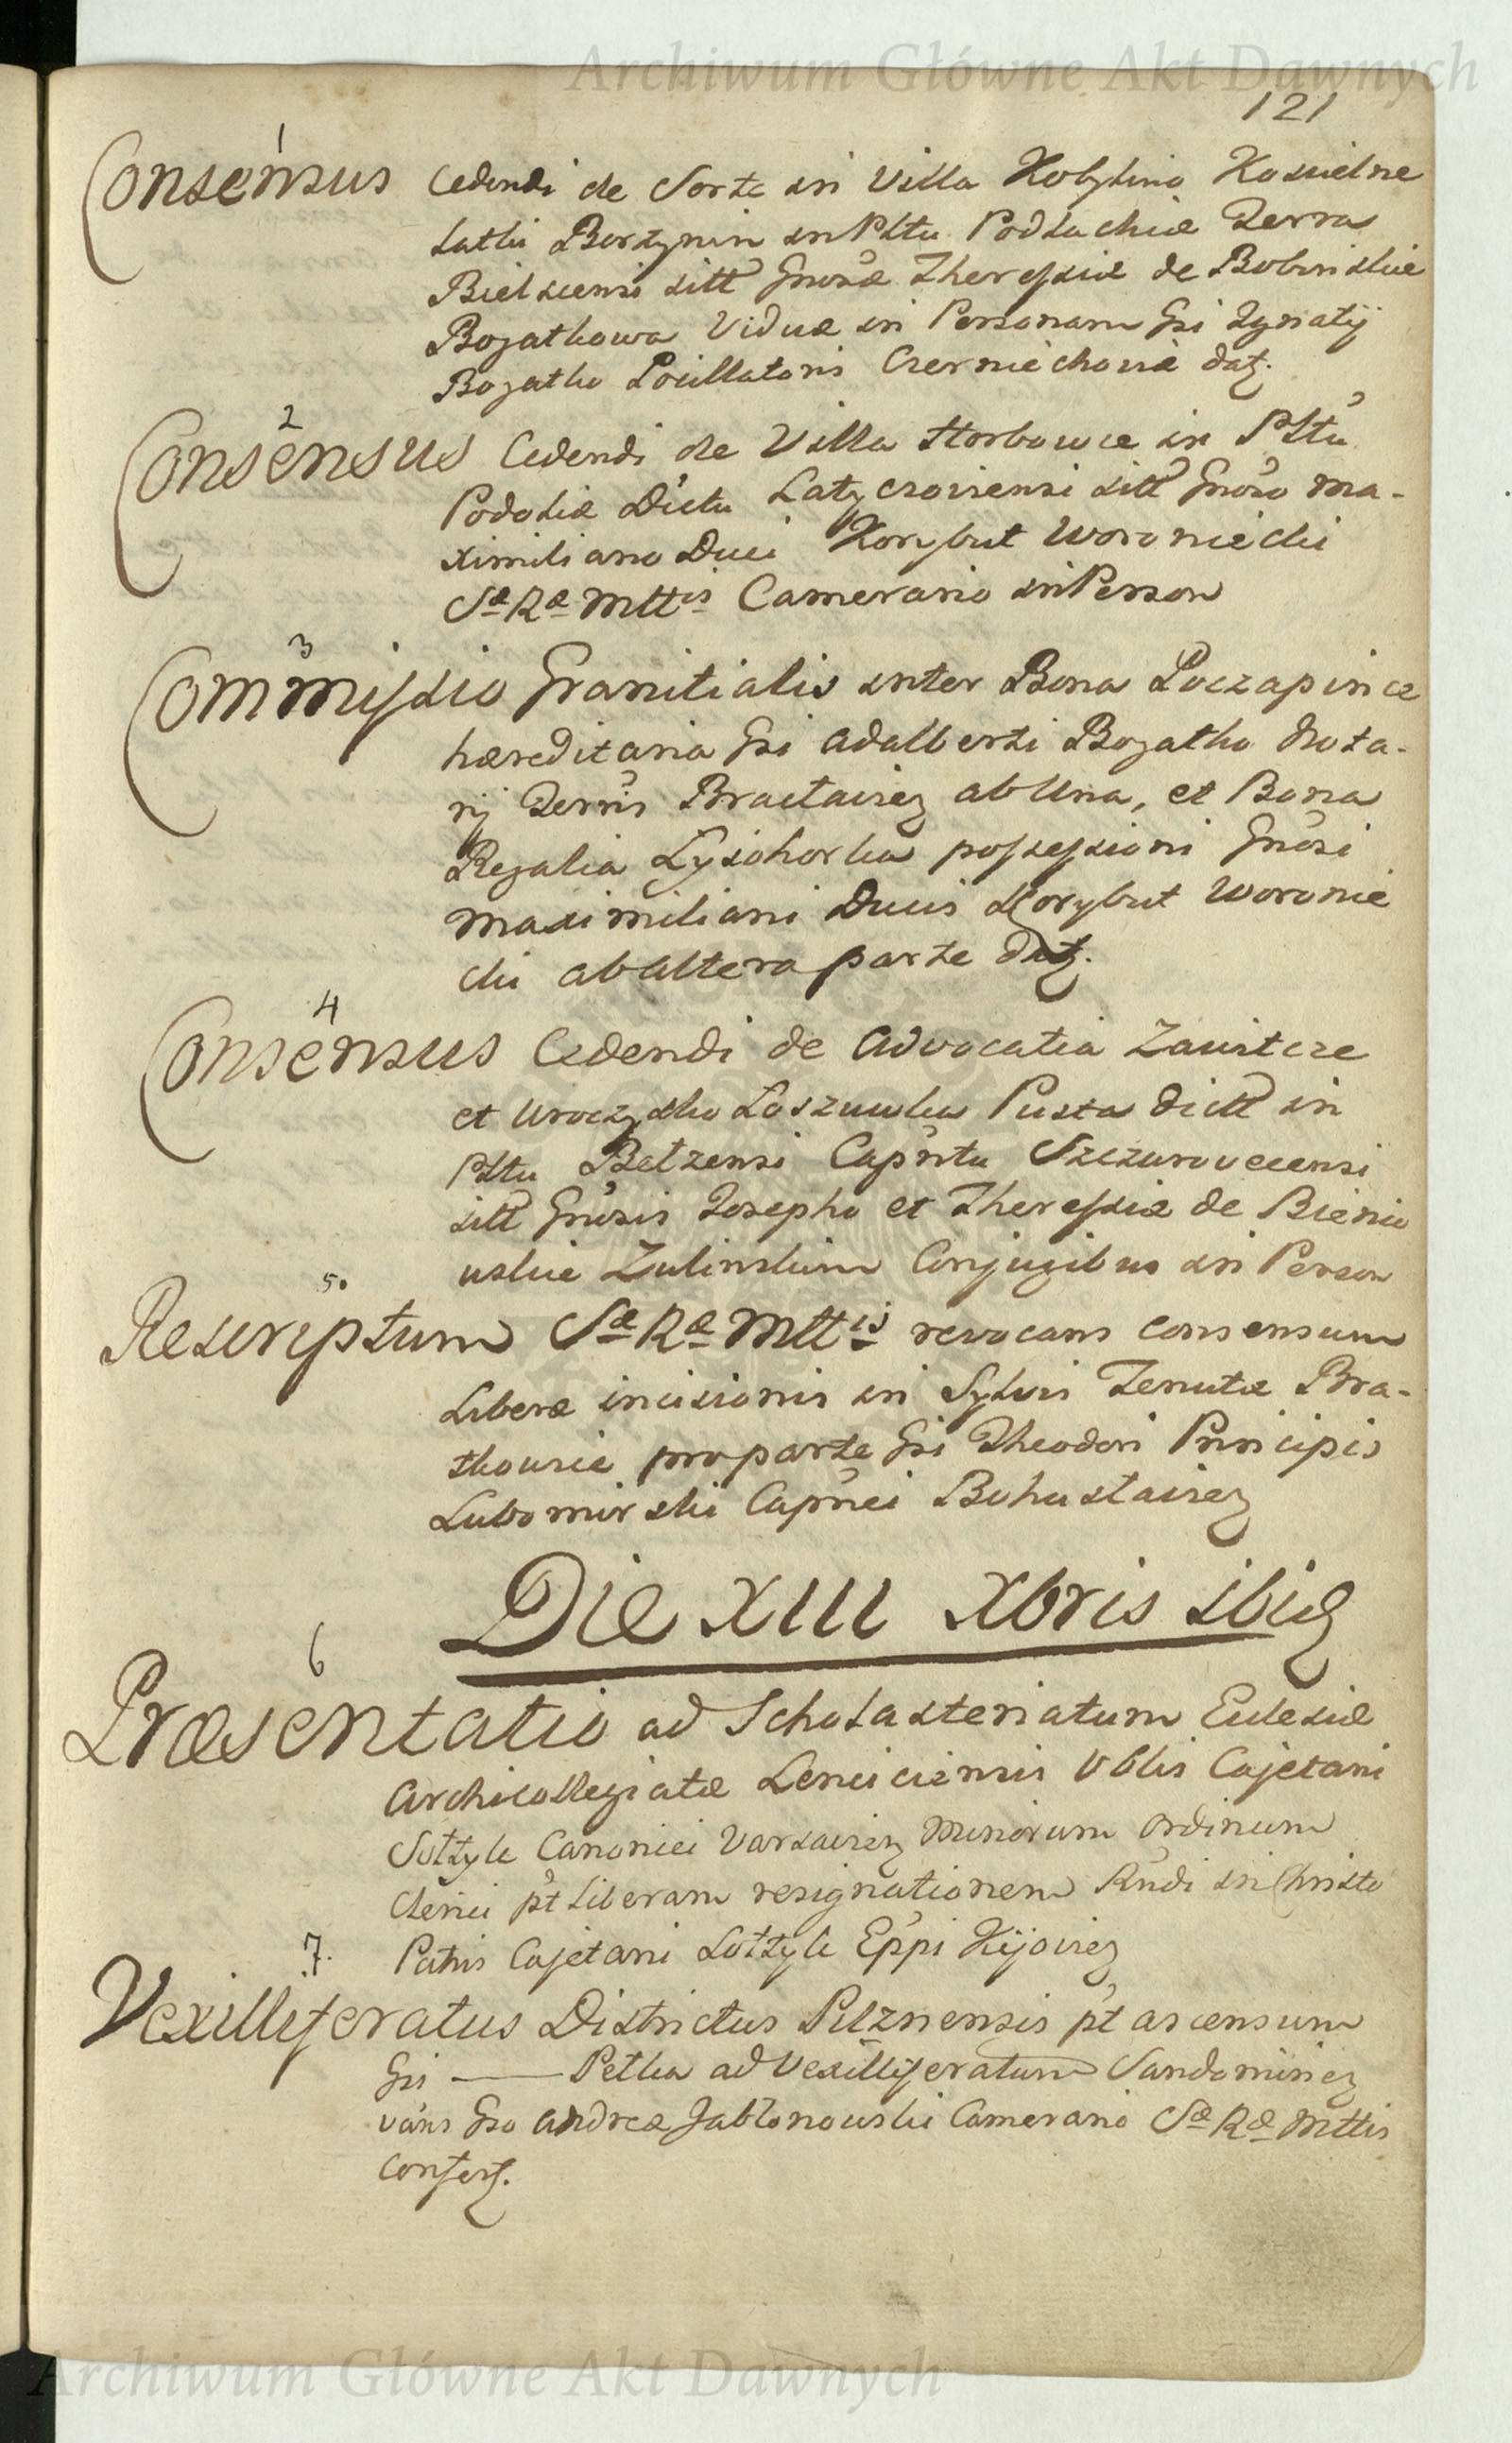 Archiwum Główne Akt Dawnych
121
1
Consensus Cedendi de Sorte in Villa Kobylino Koscielne
Latki Borzymin in Pltu Podlachiæ Terra
Bielscensi sitt Gnosæ Theressiæ de Bobinskie
Bogatkowa Viduæ in Personam Gsi Ignatij
Bogatko Pocillatoris Czerniechoviæ datz.
2
Consensus Cedendi de Villa Horbowce in Pltu
Podoliæ Dictu Latyczoviensi sitt Gnoso Ma-
ximiliano Duci Korybut Woroniecki
Sæ Ræ Mttis Camerario in Person
3
Commissio Granitialis inter Bona Poczapince
hæreditaria Gsi Adalberti Bogatko Nota-
rij Terris Braclavien ab Una, et Bona
Regalia Lysohorka possessioni Gnosi
Maximiliani Ducis Korybut Woronie
cki ab Altera parte datz.
4
Consensus Cedendi de Advocatia Zawitcze
et Uroczysko Loszuwka Pusta dictt in
Pltu Belzensi Capntu Szczurovecensi
sitt Gnosis Josepho et Theressiæ de Bienio
uskie Zulinskim Conjugibus in Person
5.
Rescriptum Sæ Ræ Mttis revocans consensum
Liberæ incisionis in Sylvis Tenutæ Bra-
tkowie pro parte Gsi Theodori Principis
Lubomirski Capnei Bohuslavien
Die XIII Xbris ibid
6
Præsentatio ad Scholasteriatum Eclesiæ
Archicollegiatæ Lenciciensis Vblis Cajetani
Sołtyk Canonici Varsavien Minorum Ordinum
Clerici pt Liberam resignationem Rndi in Christo
Patris Cajetani Sołtyk Eppi Kijovien
7.
Vexilliferatus Districtus Pilznensis pt ascensum
Gsi —— Petka ad Vexilliferatum Sandomirien
vans Gso Andreæ Jabłonowski Camerario Sæ Ræ Mttis
confert.
Archiwum Główne Akt Dawnych